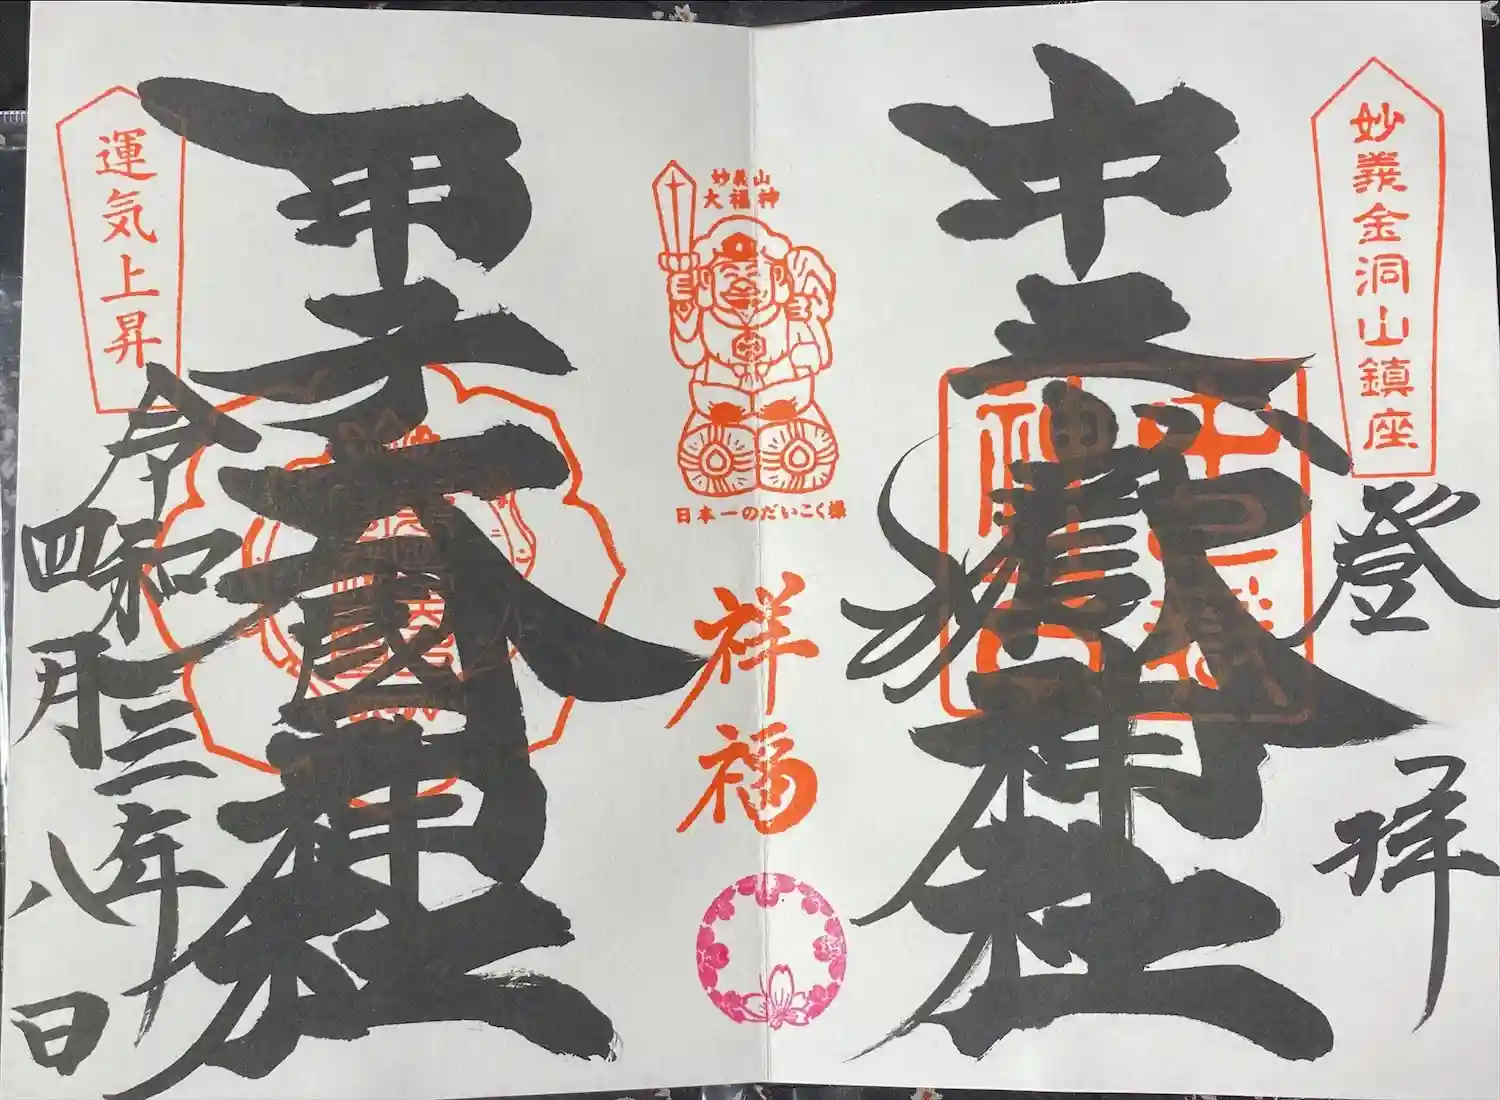 妙義金洞山鎮座
登拝
中之嶽神社
妙義山
大福神
日本一のだいこく様
祥福
甲子大國神社
運気上昇
令和三年
四月八日